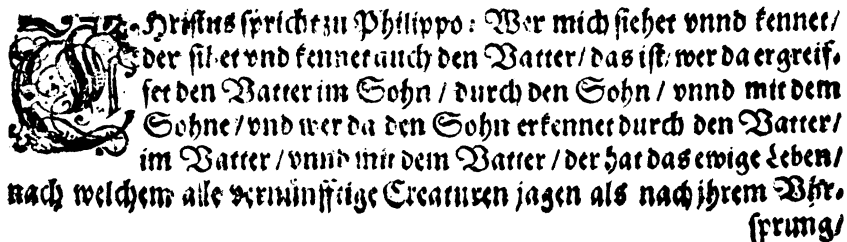 CHristus spricht zu Philippo: Wer mich siehet vnnd kennet/
der sihet vnd kennet auch den Vatter/ das ist/ wer da ergreif-
fet den Vatter im Sohn / durch den Sohn / vnnd mit dem
Sohne/ vnd wer da den Sohn erkennet durch den Vatter/
im Vatter / vnnd mit dem Vatter / der hat das ewige Leben/
nach welchem alle vernünfftige Creaturen jagen als nach jhrem Vhr-
sprung/